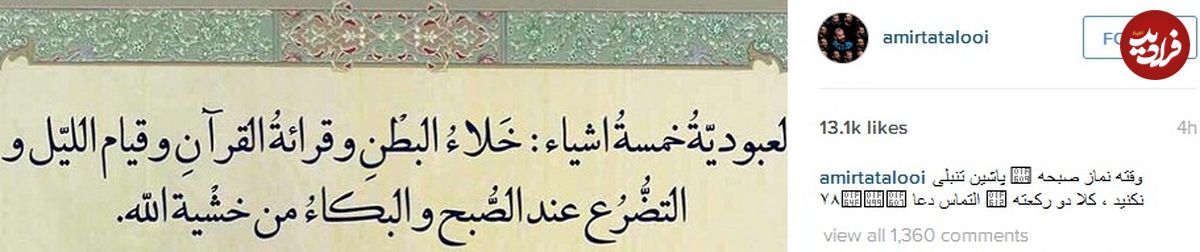 لعبوديّةُ خمسةُ اشياء: خَلاءُ البطْنِ و قرائةُ القرآنِ و قيام الليّل و
التضُّرع عند الصُّبح و البكاءُ من خشْية الله.
amirtatalooi
فرادید
13.1k likes
4h
amirtatalooi وقته نماز صبحه پاشین تنبلی
نکنید ، کلا دو رکعته التماس دعا ۷۸
view all 1,360 comments